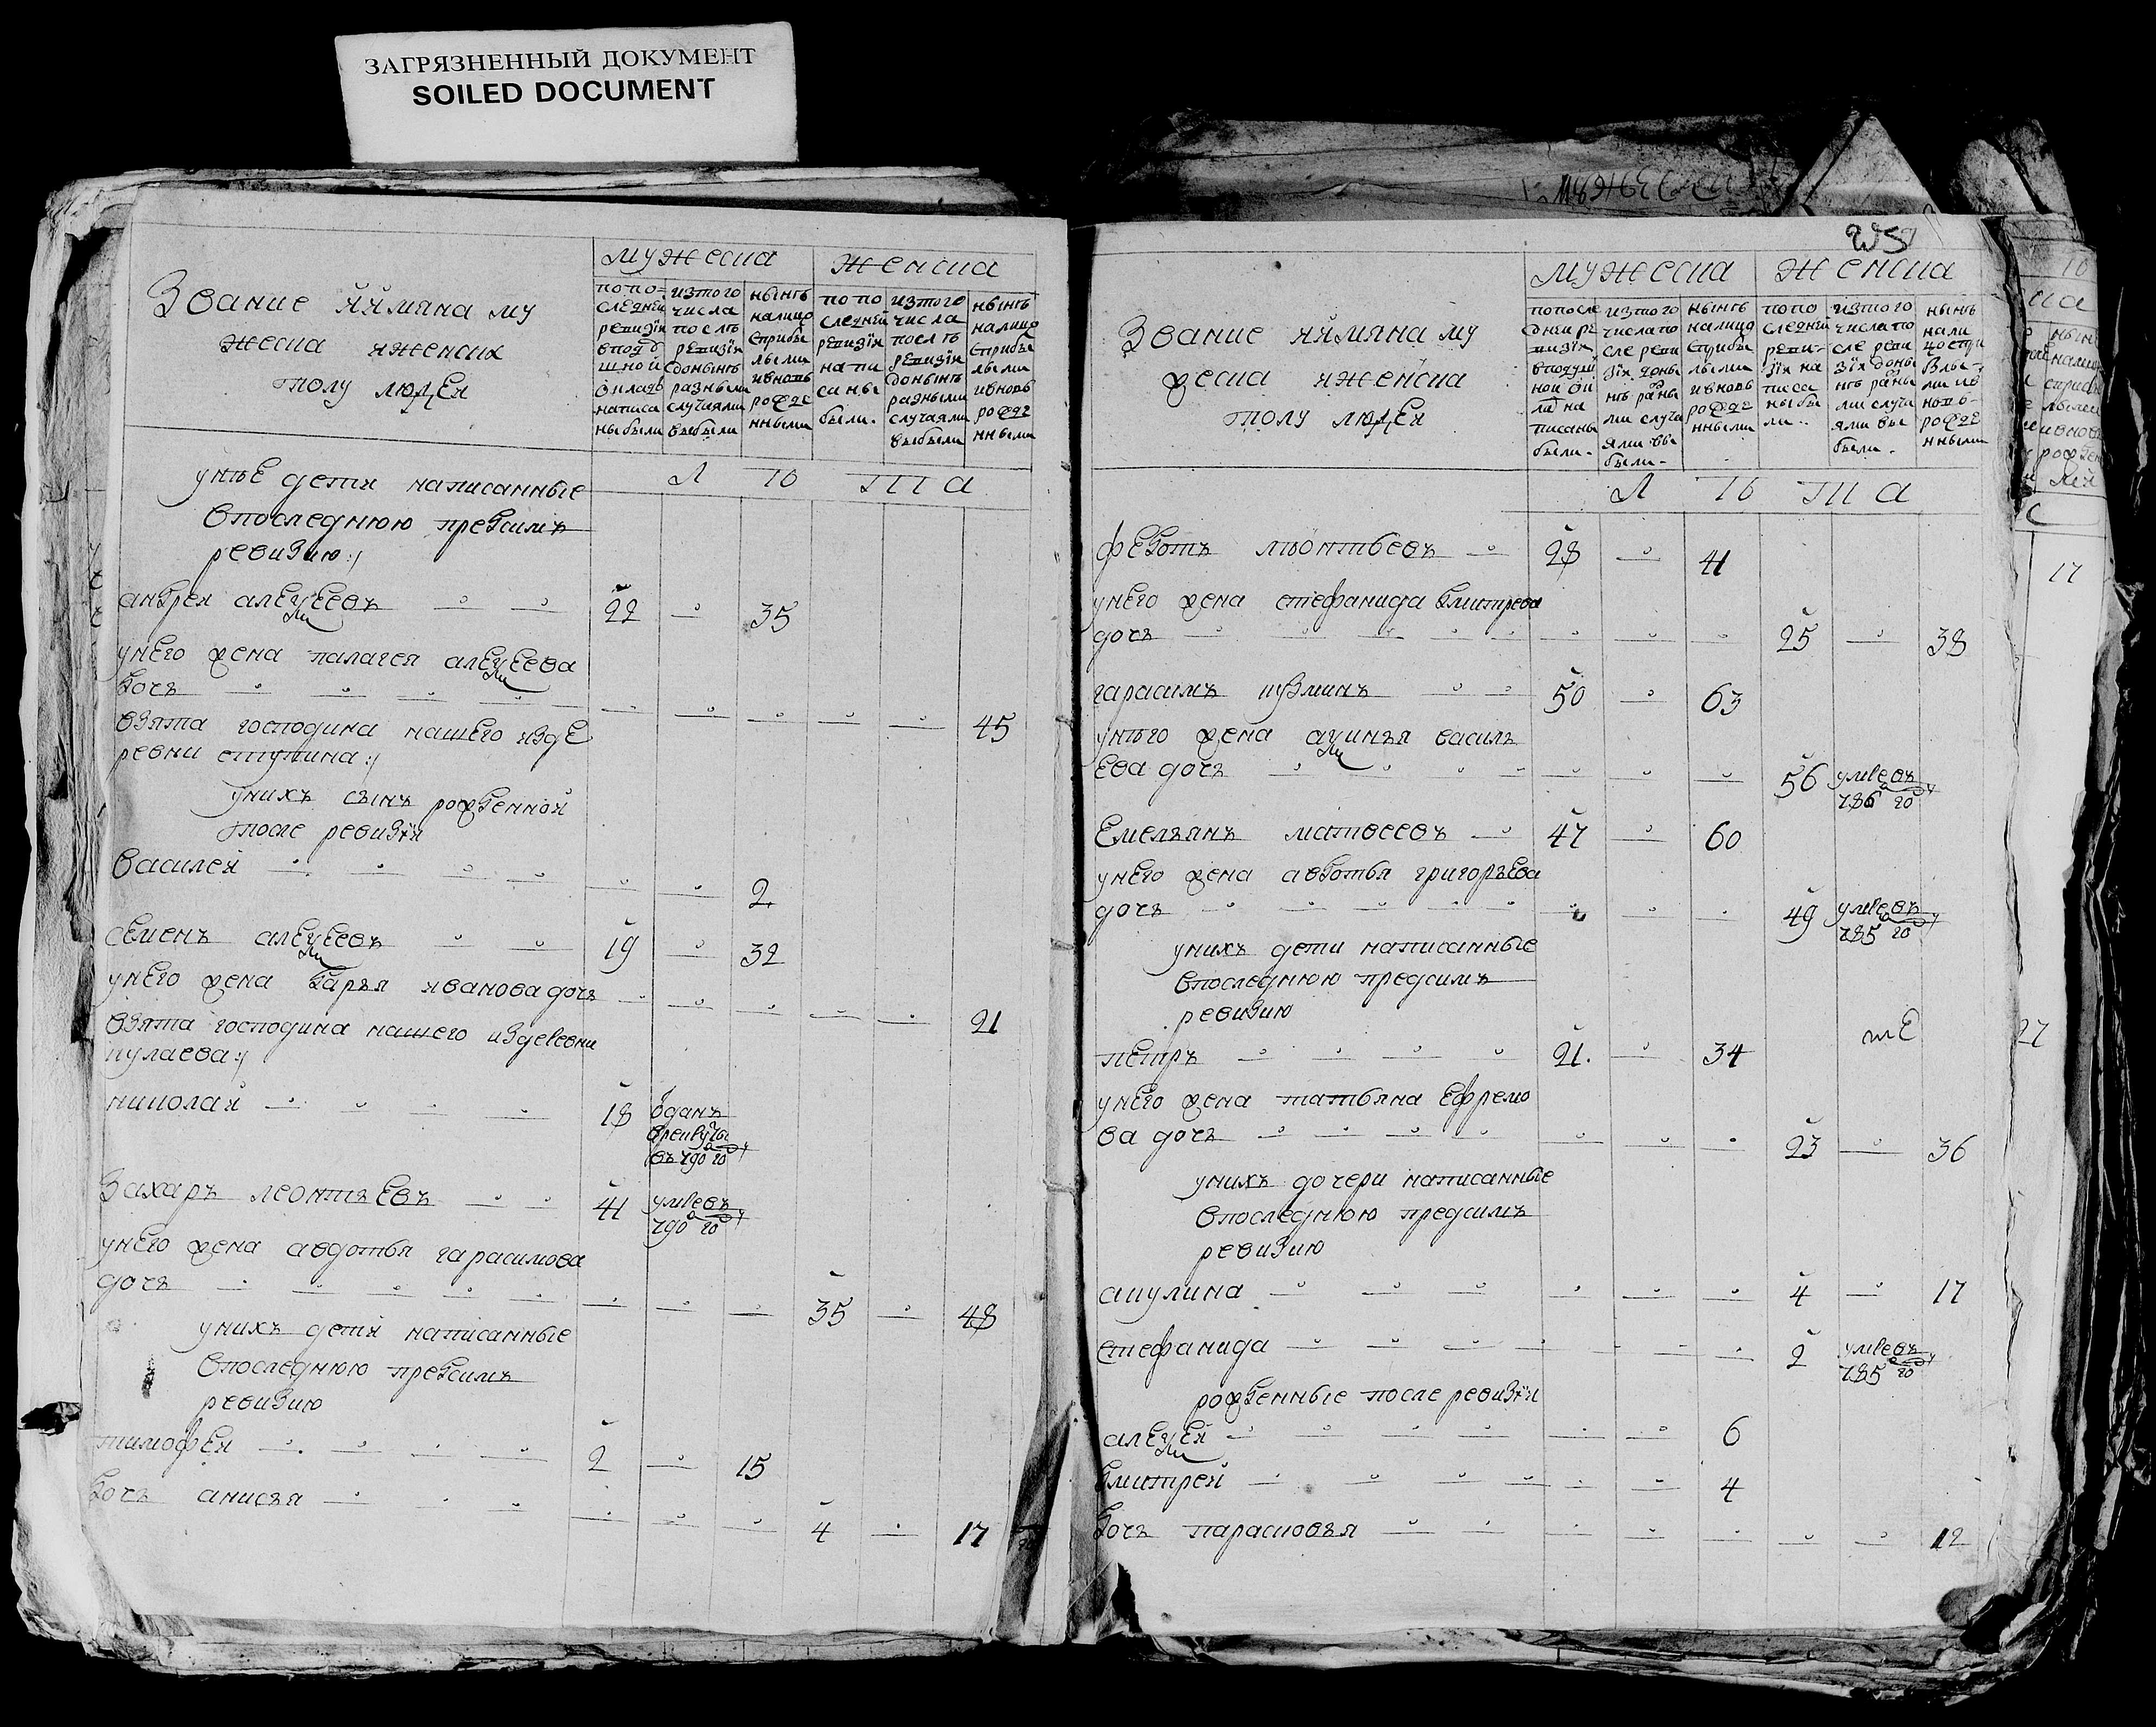 ЗАГРЯЗНЕННЫЙ ДОКУМЕНТ
SOILED DOCUMENT
Звание яймяна му
жеска яженска
полу людеи
мужеска
женска
попо-
следней
ревизїи
вподу
шной
окладъ
написа
ны были
изтого
числа
послъ
ревизїи
донынъ
разными
случаями
выбыли
нынъ
налицо
сприбы
лыми
ивновь
рожде
нными
попо
следней
ревизїи
напи
саны
были.
изтого
числа
послъ
ревизїи
донынъ
разными
случаями
выбыли
нынъ
налицо
сприбы
лыми
ивновь
рожде
нными
Л Ѣ Т А
унъе дети написанные
впоследнюю предсимъ
ревизию:/
андреи алеѯеевъ 22 35
унего жена палагея алеѯеева
дочъ 45
взята господина нашего изде
ревни ступина:/
унихъ сынъ рожденной
после ревизїи
василей 2.
семенъ алеѯеевъ 19 32
унего жена даръя иванова дочъ 21
взята господина нашего издеревни
кулаева:/
николай 18 оданъ
врекруты
въ 790 го
захаръ леонтъевъ 41 умревъ
790 го
унего жена авдотья гарасимова
дочъ 35 48
унихъ дети написанные
впоследнюю предсимъ
ревизию
тимофеи 2 15
дочъ анисъя 4 17
Звание яймяна му
жеска яженска
полу людеи
мужеска
женска
попосле
дней ре
визїи
вподуш
ной ок
ла на
писаны
были-
изтого
числапо
сле реви
зїи доны
нъ разны
ми случа
ями вы
были-
нынъ
налицо
сприбы
лыми
ивновь
рожде
нными
попо
следней
реви-
зїи на
писа
ны бы
ли..
изтого
числапо
сле реви
зїи доны
нъ разны
ми случа
ями вы
были.
нынъ
нали
цо спри
былы-
ми ив
новь-
рожде
нными
Л Ѣ Т А
федотъ лѣонтьевъ 28 41
унего жена стефанида дмитрева
дочъ 25 38
гарасимъ кузминъ 50 63
унъго жена аѯинъя василъ
ева дочъ 56 умревъ
786 го
емелъянъ матвеевъ 47 60
унего жена авдотья григоръева
дочъ 49 умревъ
785 го
унихъ дети написанные
впоследнюю предсимъ
ревизию
петръ 21. 34
унего жена татьяна ефремо
ва дочъ 23 36
унихъ дочери написанные
впоследнюю предсимъ
ревизию
акулина 4 17
стефанида 2 умревъ
785 го
рожденные после ревизїи
алеѯей 6
дмитрей 4
дочъ парасковъя 12
17
27